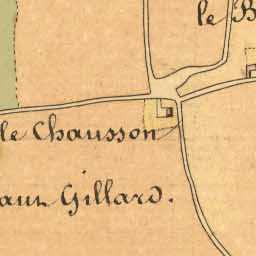 le B
le Chausson
aut Gillard.